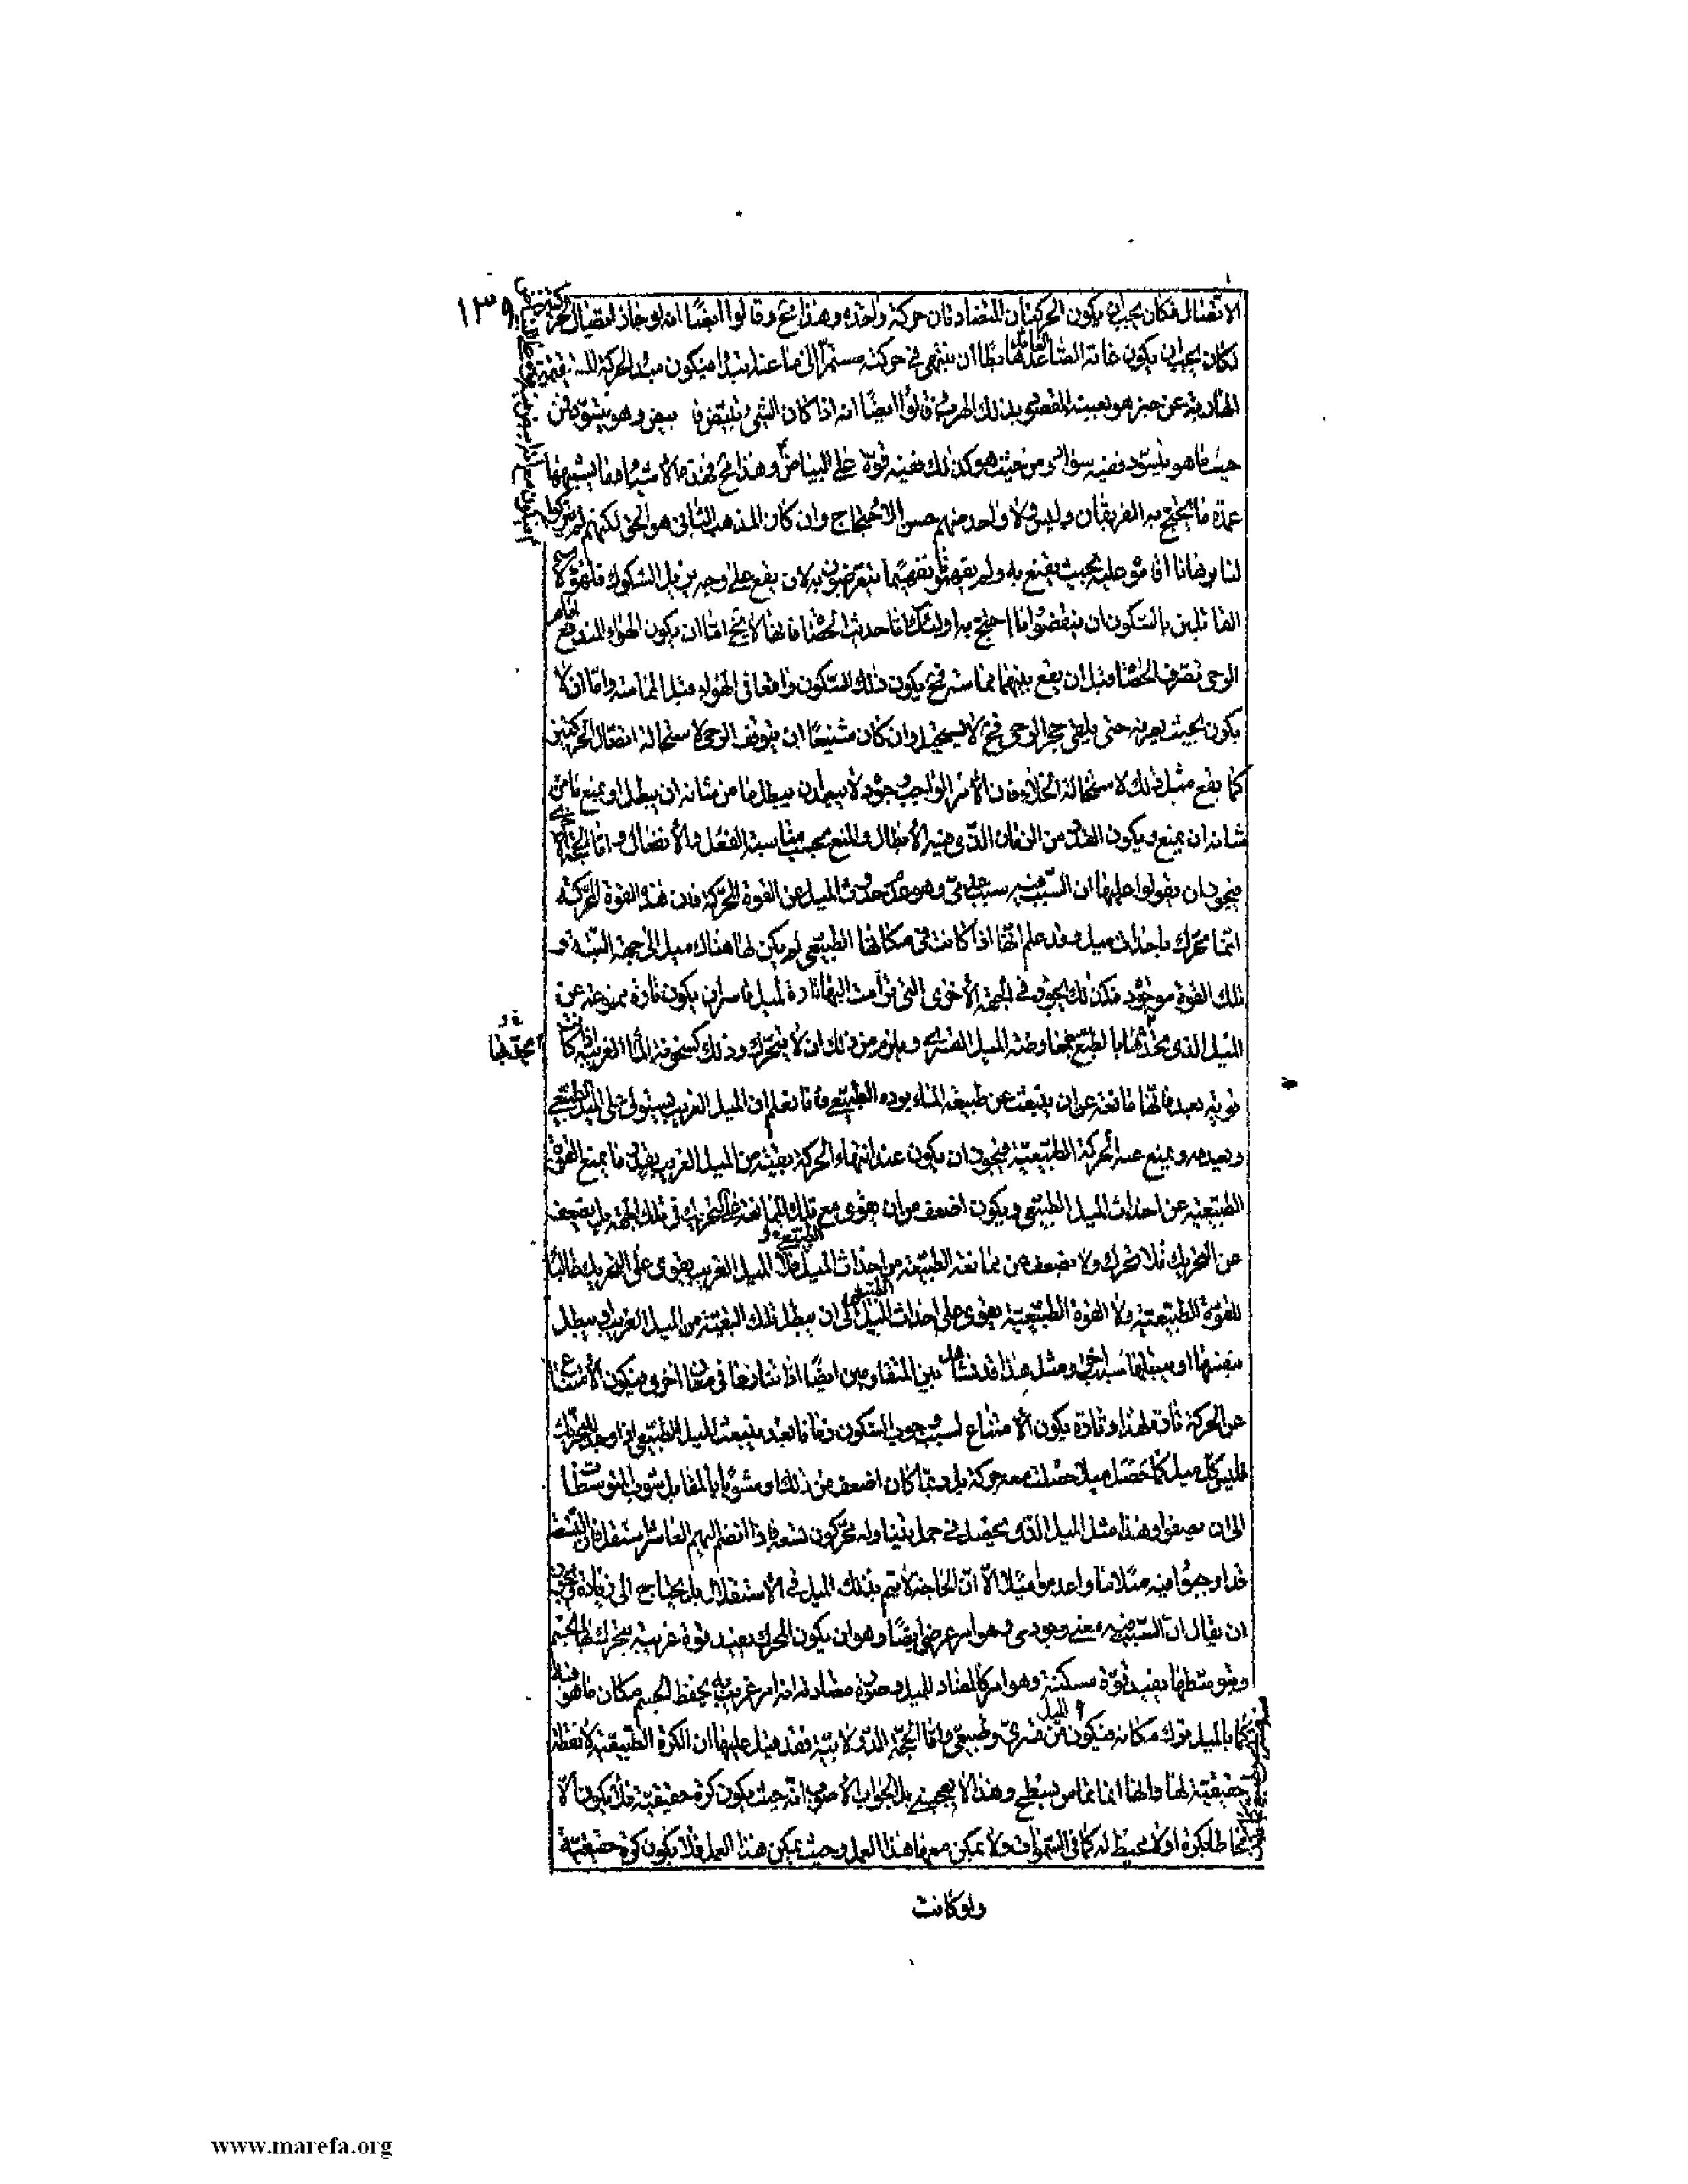 ١٣٩
الاتصال فكان يجب ان يكون الحركتان المتضادتان حركة واحدة وهذا مح وقالوا ايضا انه لو جاز اتصال الحركتين
لكان يجب ان يكون غاية الصاعد العائد هابطا ان ينتهى فى حركته مستمرا الى ما عنه ابتدأ فيكون مبدأ الحركة المستقيمة
الهاربة عن حيز هو بعينه المقصود بذلك الهرب وقالوا ايضا انه اذا كان الشىء يبيض وهو يتسود فمن
حيث ما هو يتسود ففيه سواد ومن حيث هو كذلك ففيه قوة على البياض وهذا مح فهذه الاشياء وما يشبهها
عمدة ما يحتج به الفريقان وليس ولا واحد منهم حسن الاحتجاج وان كان المذهب الثانى هو الحق لكنهم لم
لنا برهانا اقاموا عليه بحيث يقنع به ولم يفهموه تفهيما يتعرضون به لان يقع على وجه يزيل الشكوك فلهؤلاء
القائلين بالسكون ان ينقضوا ما احتج به اولئك اما حديث الحصاة فانها لا يخ اما ان يكون الهواء المندفع امام
الرحى تصرف الحصاة قبل ان يقع بينهما مماسة فح يكون ذلك السكون واقعا فى الهواء قبل المماسة واما ان لا
يكون بحيث يصرفه حتى يلقى حجر الرحى فح لا يستحيل وان كان شنيعا ان يتوقف الرحى لاستحالة اتصال الحركتين
كما يقع مثل ذلك لاستحالة الخلاء فان الامر الواجب وجوده لا يبعد ان يبطل ما من شانه ان يبطل او يمنع ما من
شانه ان يمنع ويكون القدر من الزمان الذى فيه الابطال والمنع بحسب مناسبة الفعل والانفعال واما الحجة
فيجوز ان يقولوا عليها ان السبب فيه سبب عدمى وهو عدم حدوث الميل عن القوة المحركة فان هذه القوة المحركة
انما تحرك باحداث ميل وقد علم انها اذا كانت فى مكانها الطبيعى لم يكن لها هناك ميل الى جهة البتة و
تلك القوة موجودة فكذلك يجوز فى الجهة الاخرى التى تراءت اليها تارة لميل قاسر ان يكون تارة ممنوعة عن
الميل الذى يحدثها بالطبع بمعاوضة الميل القسرى ويلزم من ذلك ان لا يتحرك وذلك كسخونة الماء الغريبة اذا كانت
قوية بعد فانها مانعة عن ان ينبعث عن طبيعة الماء برده الطبيعى فاما نعلم ان الميل الغريب يستولى على الميل الطبيعى
ويعدمه ويمنع عنه الحركة الطبيعية فيجوز ان يكون عند انتهاء الحركة بقية من الميل الغريب بقدر ما يمنع القوة
الطبيعية عن احداث الميل الطبيعى ويكون اضعف من ان يقوى مع تلك الممانعة على التحريك فى تلك الجهة بل يضعف
عن التحريك فلا تحرك ولا يضعف عن ممانعة الطبيعة من احداث الميل الطبيعى فلا الميل الغريب يقوى على التحريك غالبا
للقوة الطبيعية ولا القوة الطبيعية يقوى على احداث الميل الطبيعى الى ان يبطل تلك البقية من الميل الغريب ويبطل
بنفسها او يبطلها سبب اخر ومثل هذا قد نشاهد بين المتقاومين ايضا اذا تنازعا فى اخرى فيكون الامتناع
عن الحركة تارة لهذا وتارة يكون الامتناع لسبب وجوب السكون زمانا بعد ينبعث الميل الطبيعى
فليس كل ميل كما حصل ميلا حصلت معه حركة بل ربما كان اضعف من ذلك او مشوبا بالمقابل شوب المتوسطات
الى ان يصفو وهذا مثل الميل الذى يحصل فى حمل يتناوله محركون تسعة فاذا انضم اليهم العاشر استقل فان التسعة
قد اوجبوا فيه مثلا ما واعدموا مثلا الا ان الحاجة لا يتم بذلك الميل فى الاستقلال بل يحتاج الى زيادة ويجوز
ان يقال ان السبب فيه معنى وجودى هو امر عرضى ايضا وهو ان يكون المحرك يفيد قوة غريبة يتحرك بها الجسم
وبتوسطها يفيد قوة مسكنة وهو امر كالمضاد للميل وصورة مضادته انه امر غريب به يحفظ الجسم مكان ما هو فيه
كما بالميل يترك مكانه فيكون منه قسرى وطبيعى واما الحجة الدولابية فقد قيل عليها ان الكرة الطبيعية لا نقطة
حقيقية لها وانها انما تماس بسطح وهذا لا يعجبنى بل الجواب الاصوب انه حيث يكون كرة حقيقية فلا يكون الا
محاطا بكرة او لا محيط له كما فى السموات ولا يمكن معها هذا العمل وحيث يمكن هذا العمل فلا يكون كرة حقيقية
ولو كانت
www.marefa.org